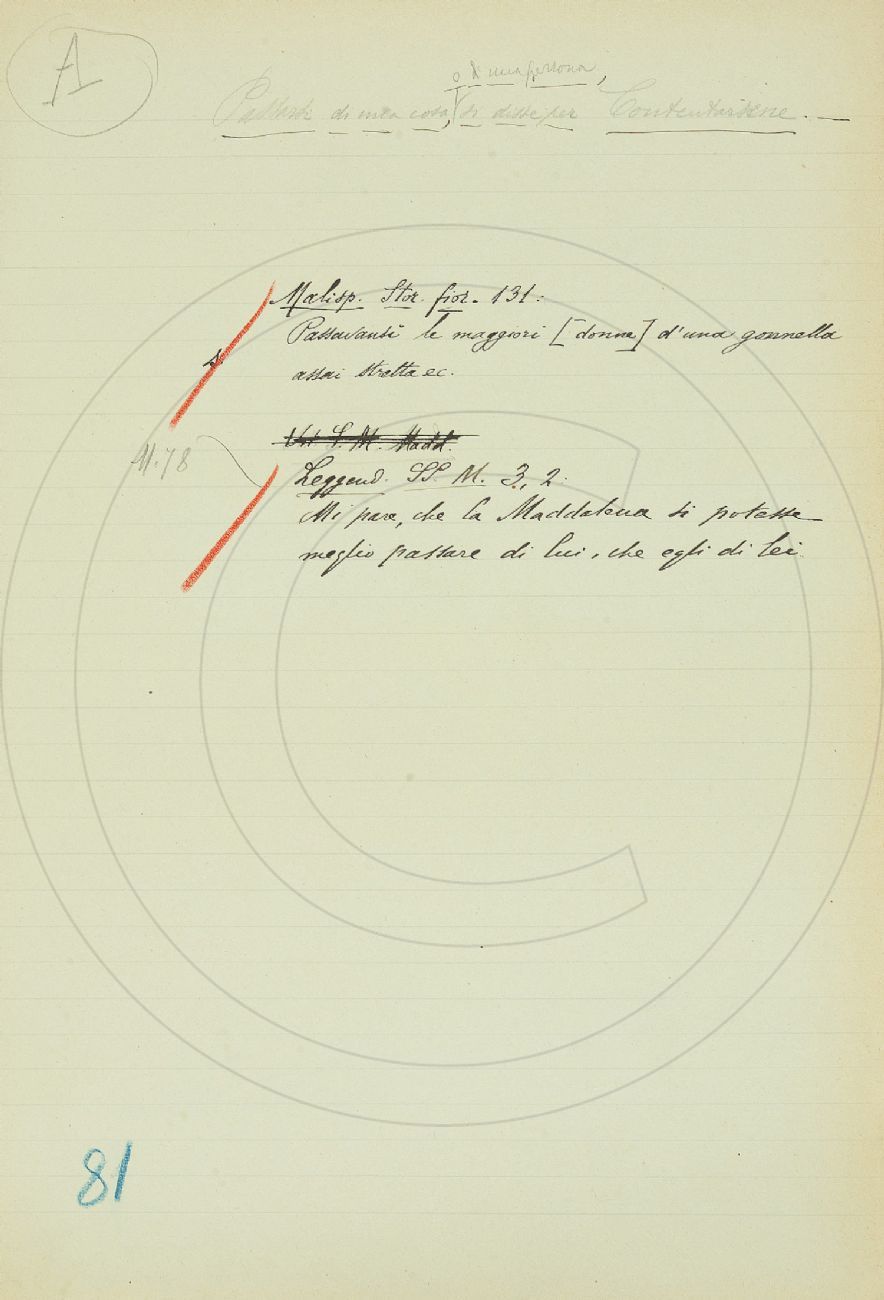 A
o d'una persona,
Passarsi di una cosa, si disse per Contentarsene. —
Malisp. Stor. fior. 131:
Passavansi le maggiori [donne] d'una gonnella
assai stretta ec.
Vit S. M. Madd.
Leggend. SS. M. 3, 2:
Mi pare, che la Maddalena si potesse
meglio passare di lui, che egli di lei
81